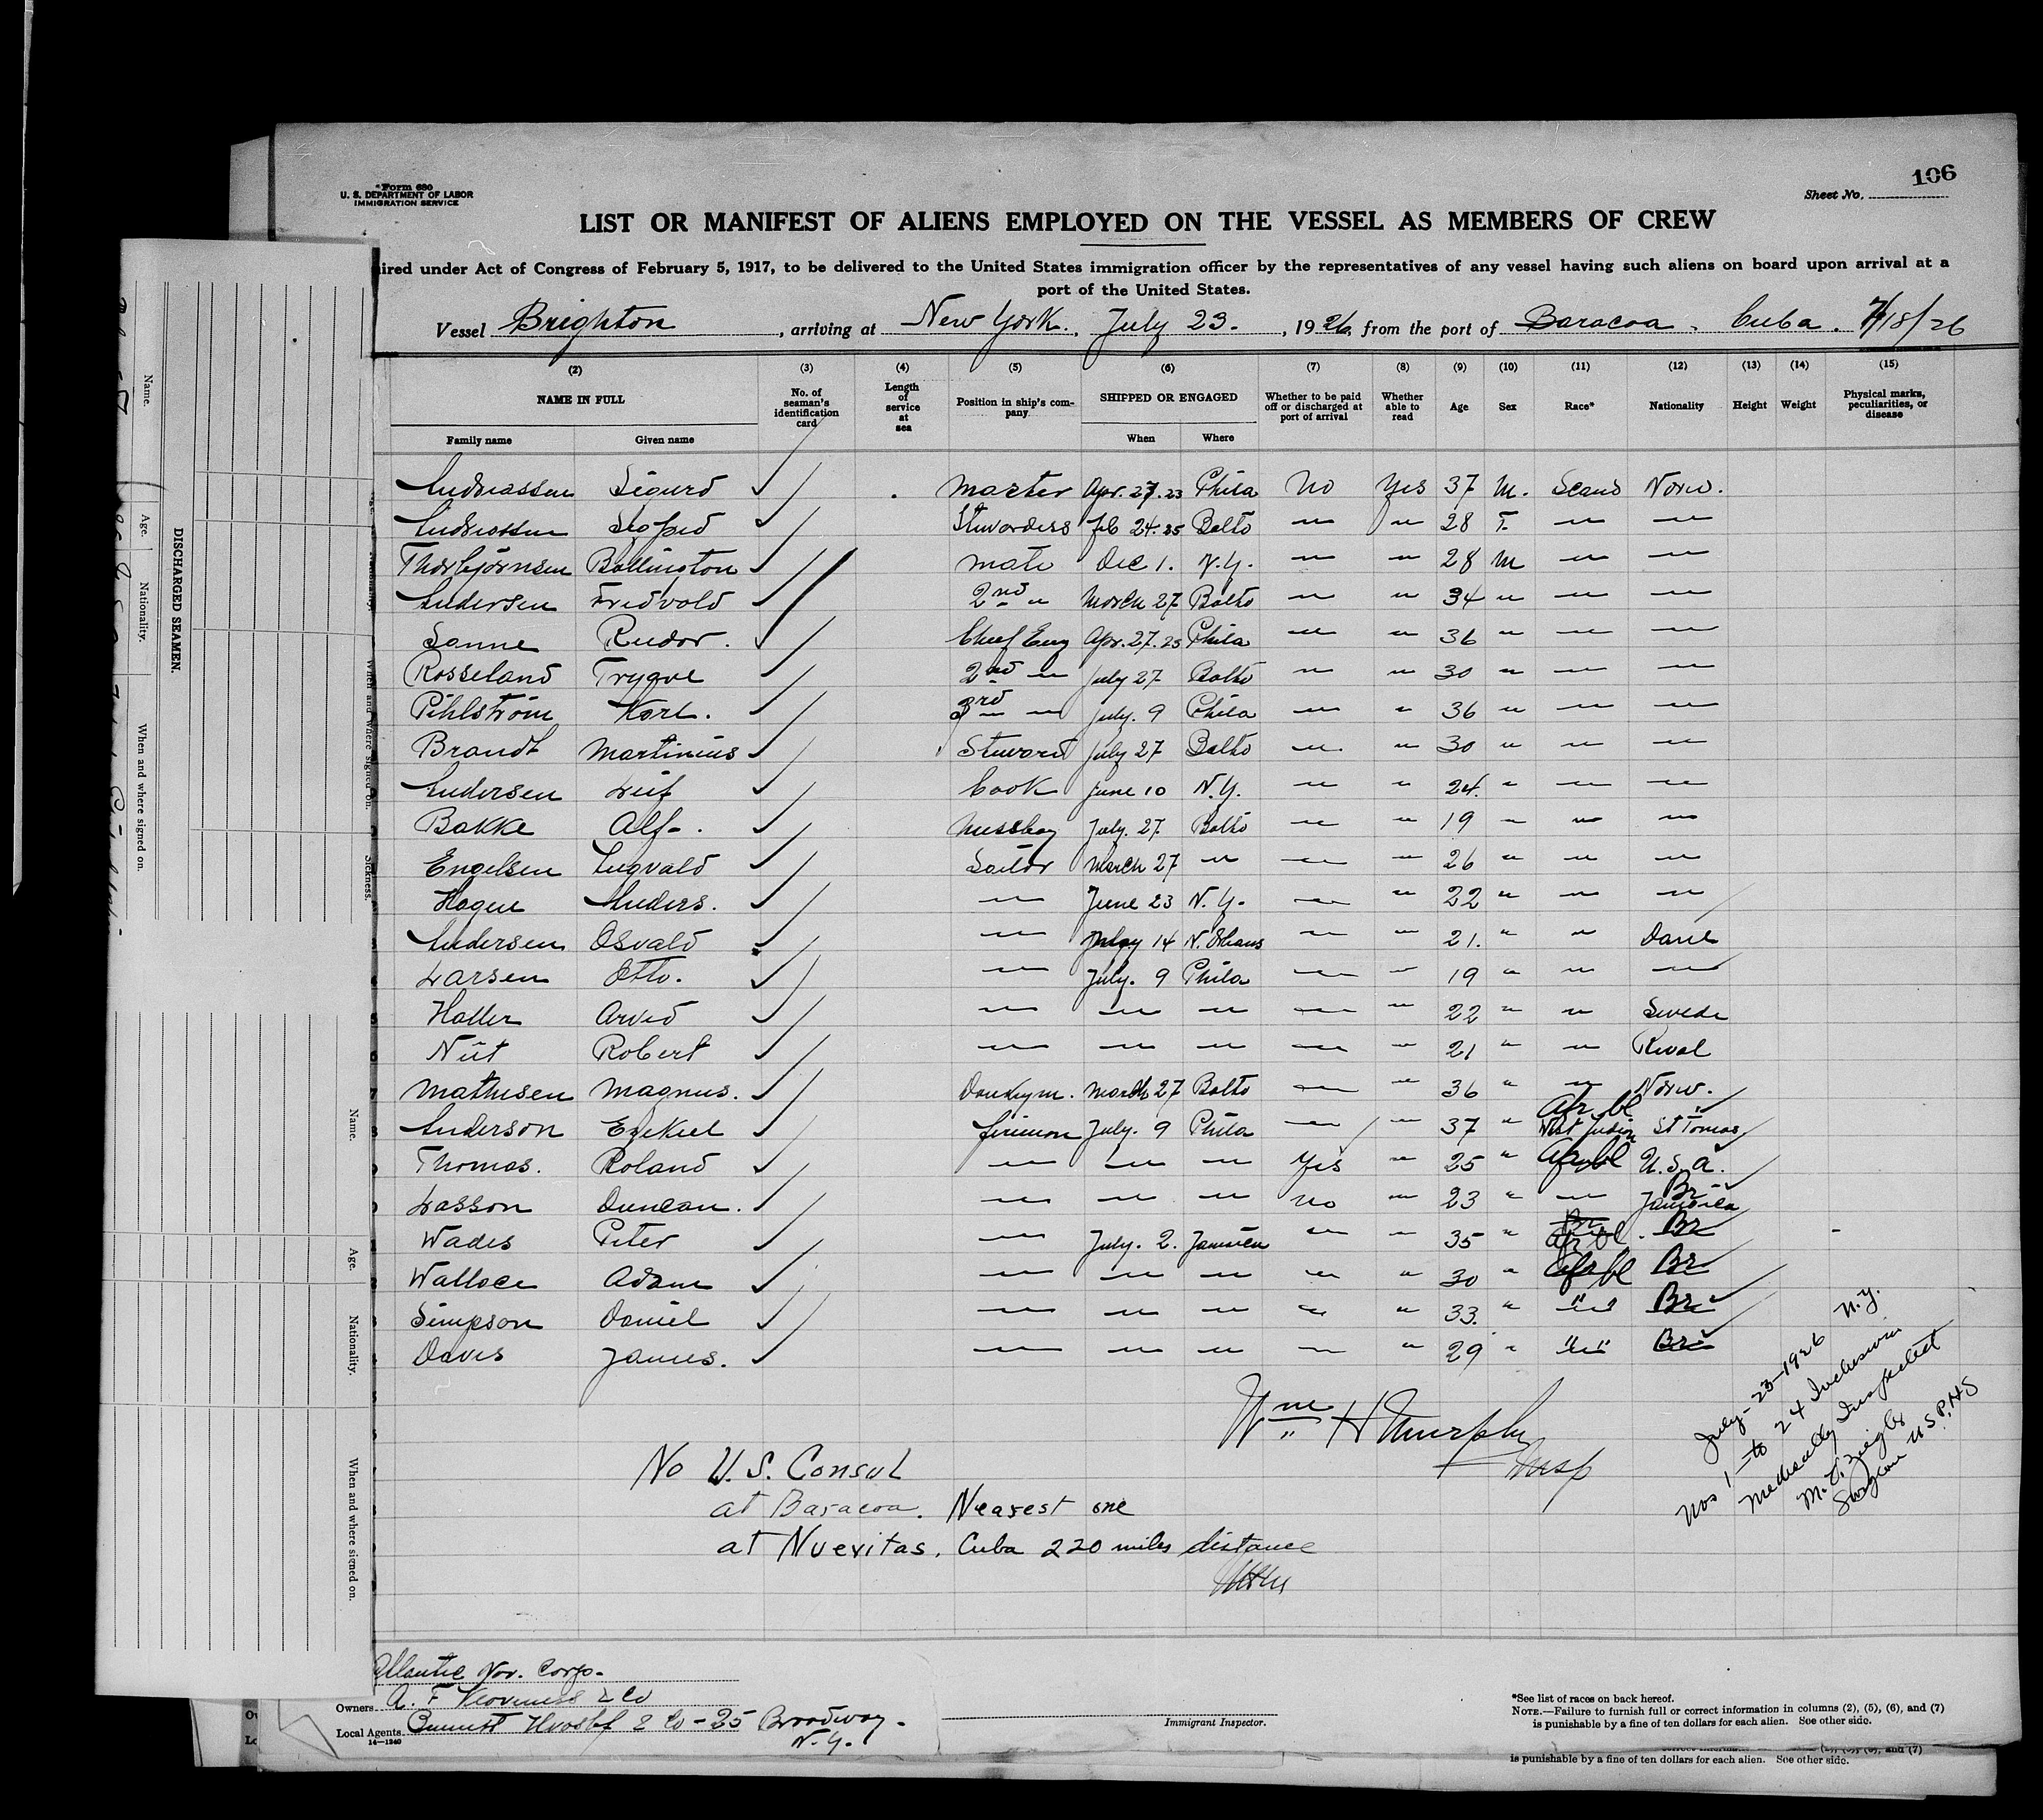 Form 680
U. S. DEPARTMENT OF LABOR
IMMIGRATION SERVICE
Sheet No. 106
LIST OR MANIFEST OF ALIENS EMPLOYED ON THE VESSEL AS MEMBERS OF CREW
ired under Act of Congress of February 5, 1917, to be delivered to the United States immigration officer by the representatives of any vessel having such aliens on board upon arrival at a
port of the United States.
Vessel Brighton, arriving at New York, July 23, 1926, from the port of Baracoa, Cuba. 7/18/26
(2) (3) (4) (5) (6) (7) (8) (9) (10) (11) (12) (13) (14) (15)
NAME IN FULL No. of seaman's identification card Length of service at sea Position in ship's company SHIPPED OR ENGAGED Whether to be paid off or discharged at port of arrival Whether able to read Age Sex Race* Nationality Height Weight Physical marks, peculiarities, or disease
Family name Given name When Where
Andreassen Sigurd Master Apr. 27. 23 Phila No Yes 37 M. Scand Norw.
Andreassen Stuardess Feb 24. 25 Balto " " 28 F. " "
Thorbjörnsen Bollington Mate Dec 1. N.Y. " " 28 M " "
Andersen Fredvold 2nd " March 27 Balto " " 34 " " "
Sanne Reidar. Chief Eng Apr. 27. 25 Phila " " 36 " " "
Rosseland Trygve 2nd " July 27 Balto " " 30 " " "
Pihlström Karl. 3rd " July. 9 Phila " " 36 " " "
Brandt Martinius Stuward July 27 Balto " " 30 " " "
Andersen Leif Cook June 10 N.Y. " " 24. " " "
Bakke Alf. Messboy July. 27 Balto " " 19 " " "
Engelsen Ingvald Sailor March 27 " " " 26 " " "
Hagen Anders. " June 23 N.Y. " " 22 " " "
Andersen Osvald " May 14 N. Orleans " " 21. " " Dane
Larsen Otto. " July. 9 Phila " " 19 " " "
Haller Arvid " " " " " 22 " " Swede
Niit Robert " " " " " 21 " " Reval
Mathisen Magnus. Donkeym. March 27 Balto " " 36 " " Norw.
Anderson Ezekiel fireman July. 9 Phila " " 37 " Afr bl West Indian St Tomas
Thomas. Roland " " " Yes " 25 " Afr bl U.S.A.
Lasson Duncan. " " " no " 23 " " Br Jamaica
Wades Peter " July. 2. Jamaica " " 35 " Br Afr bl Br
Wallace Adam " " " " " 30 " Afr bl Br
Simpson Daniel " " " " " 33. " " " Br
Davis James. " " " " " 29 " " " Br
Wm H Murphy
Insp
July-23-1926 N.Y.
Nos 1 to 24 Inclusive
Medically Inspected
Surgeon U S P.H.S
No U.S. Consul
at Baracoa. Nearest one
at Nuevitas, Cuba 220 miles distance
Atlantic Nav. Corp.
Owners A. F. Klaveness & Co
Local Agents & Co - 25 Broadway.
N.Y.
14—1240
Immigrant Inspector.
*See list of races on back hereof.
NOTE.—Failure to furnish full or correct information in columns (2), (5), (6), and (7)
is punishable by a fine of ten dollars for each alien. See other side.
is punishable by a fine of ten dollars for each alien. See other side.
DISCHARGED SEAMEN.
Name.
Age.
Nationality.
When and where signed on.
Sickness.
Name.
Age.
Nationality.
When and where signed on.